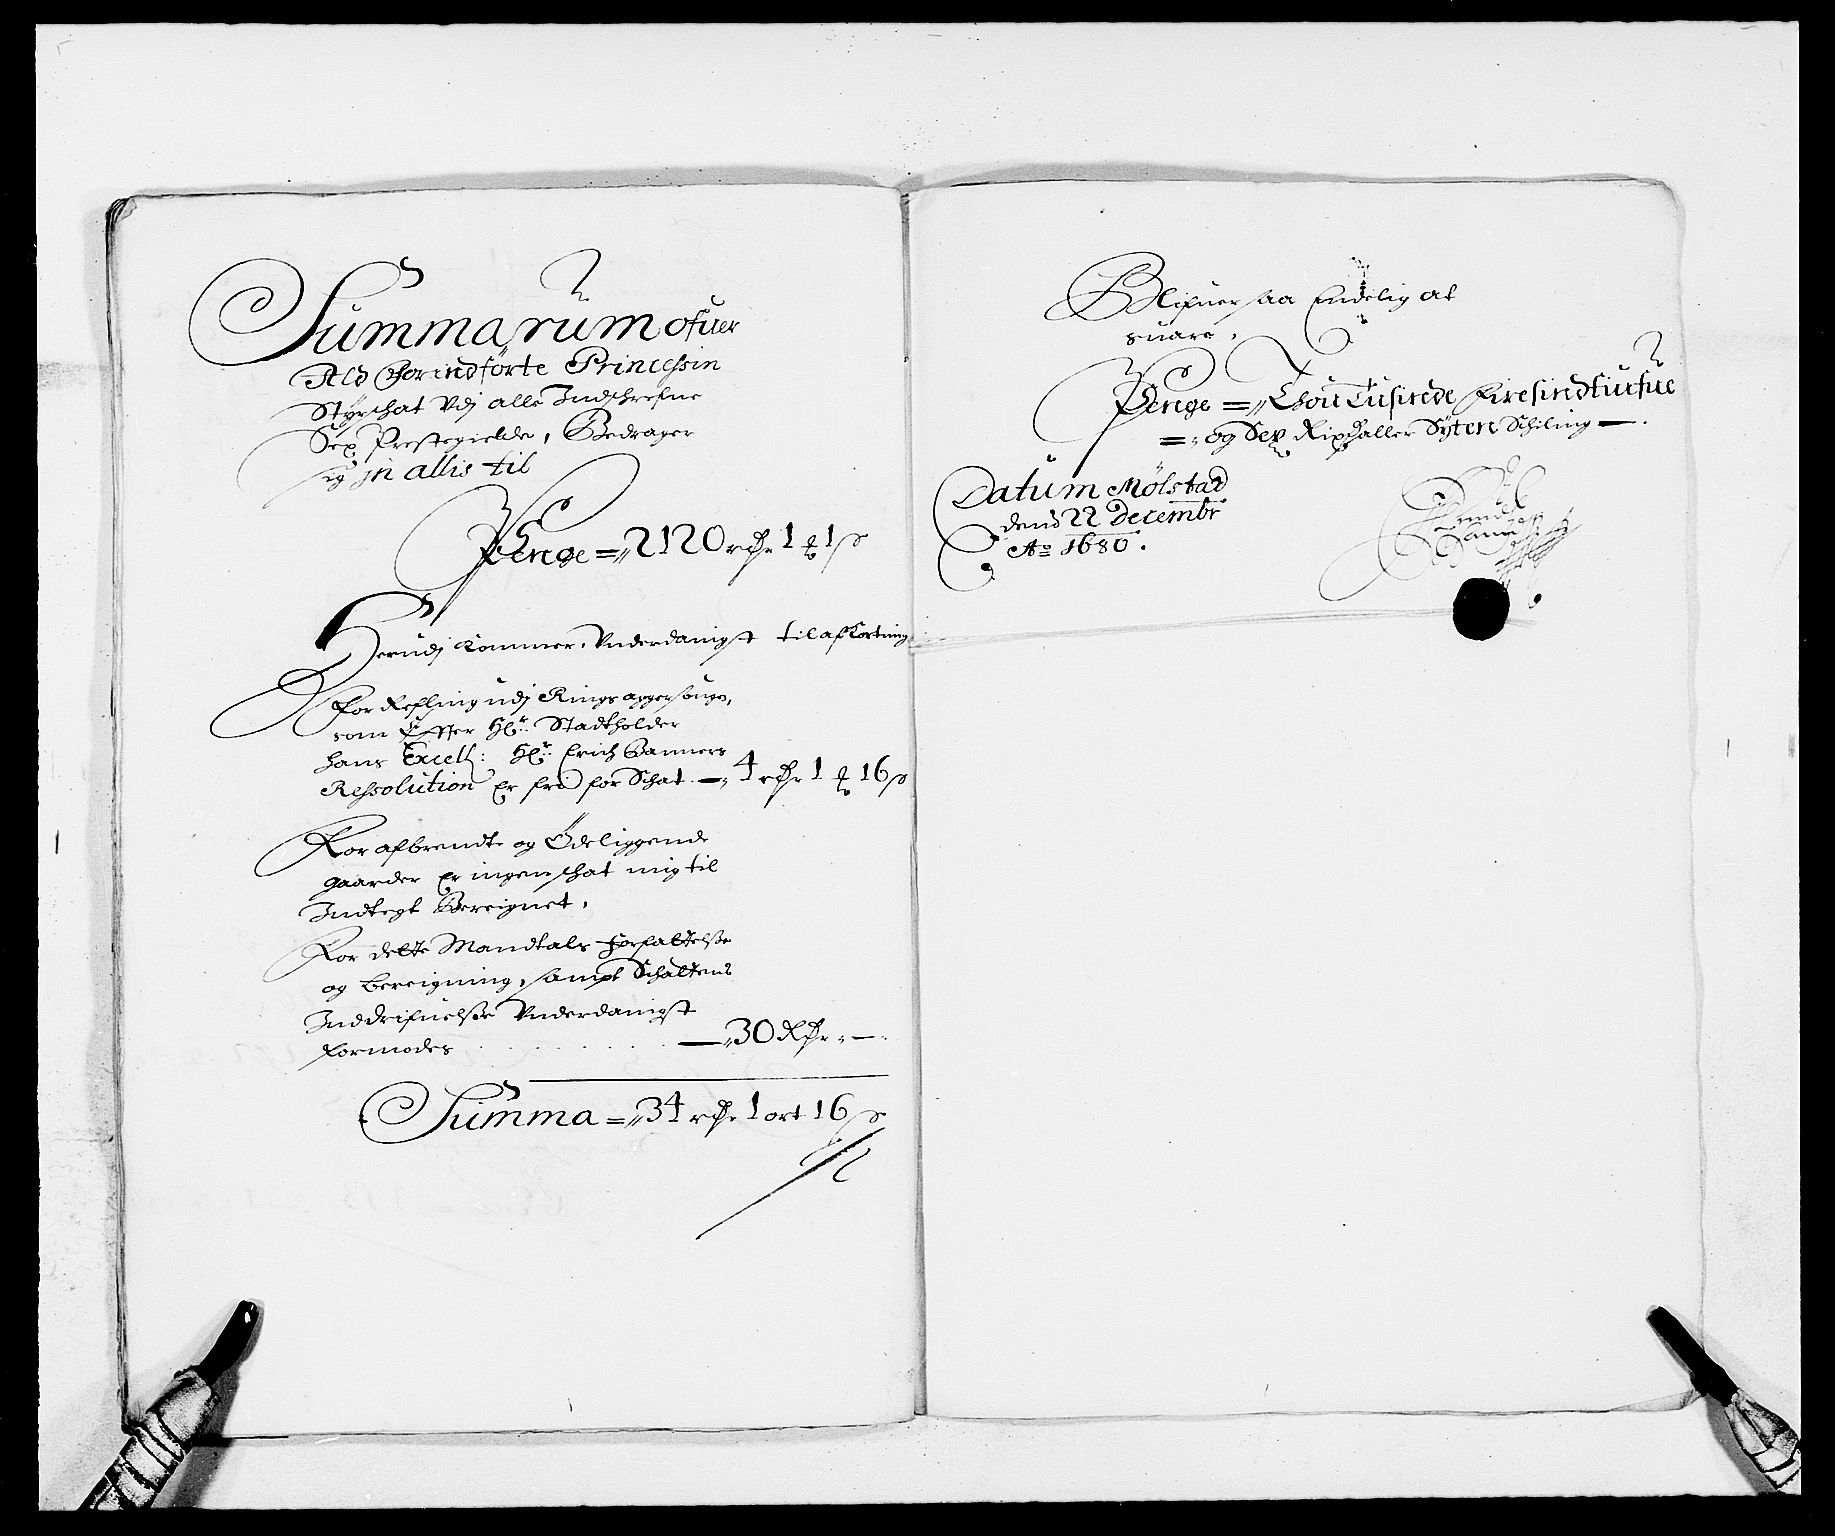 Summarum ofuer
Ald Forindførte Princessin
Styrschat Vdj alle Indschrefne
Sex Prestegielde, Bedrager
sig jn allis til
Penge = 2120 rdr 1 ℔ 1 ß
Herudj kommer Vnderdanigst til afkortning
For Refling udj Ringsagger sougn,
som Effter Hr: Stadtholder
hans Excell: Hr: Erich Banners
Ressolution Er fri for Schat — 4 rdr 1 ℔ 16 ß
For afbrendte og Ødeliggende
gaarder Er ingen schat mig til
Indtegt Beregnet,
For dette Mandtals forfattelse
og beregning, sampt Schattens
Inddrifuelse Vnderdanigst
formodes . . . . . . . — 30 Rdr —
Summa = 34 rdr 1 ort 16 ß
Blifuer saa Endelig at
suare,
Penge = Thou Tusinde Firesindtiufue
= og Sex Rixdaller Syten Schiling — .
Datum Mølstad
dend 22 Decembr
Ao 1680 .